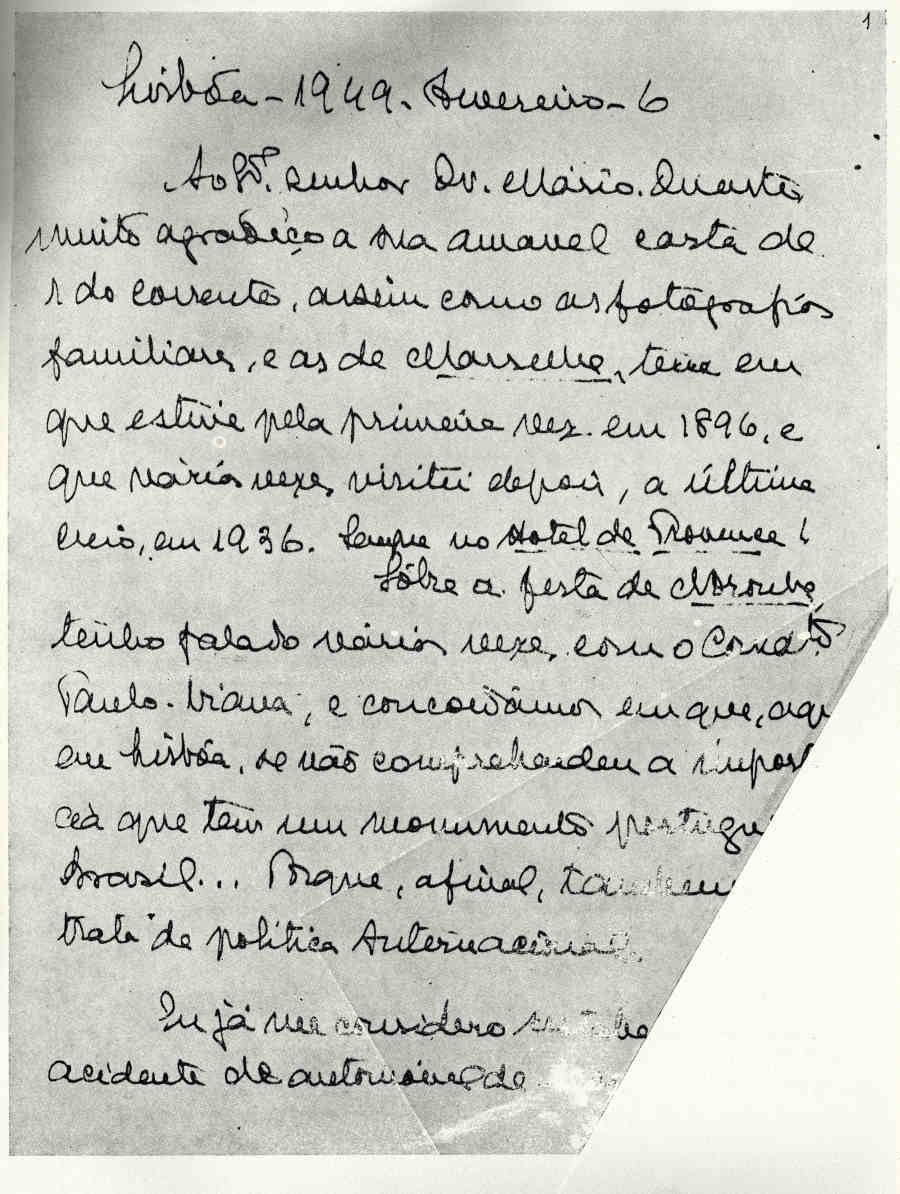 1
Lisbôa - 1949. Fevereiro - 6
Ao Ex. senhor Dr. Mário. Duarte,
muito agradeço a sua amavel carta de
1 do corrente, assim como as fotografias
familiares, e as de Marselha, terra em
que estive pela primeira vez. em 1896, e
que várias vezes, visitei depois, a última
creio, em 1936. Sempre no Hotel de Provence!
Sôbre a festa de
tenho falado várias vezes, com o
Paulo. Viana, e concordâmos em que, aqui
em Lisbôa, se não comprehendeu a import
cia que tem um monumento portugu
Brasil... Porque, afinal, tambem
trata de politica Internacional.
Eu já me considero
acidente de automovel de